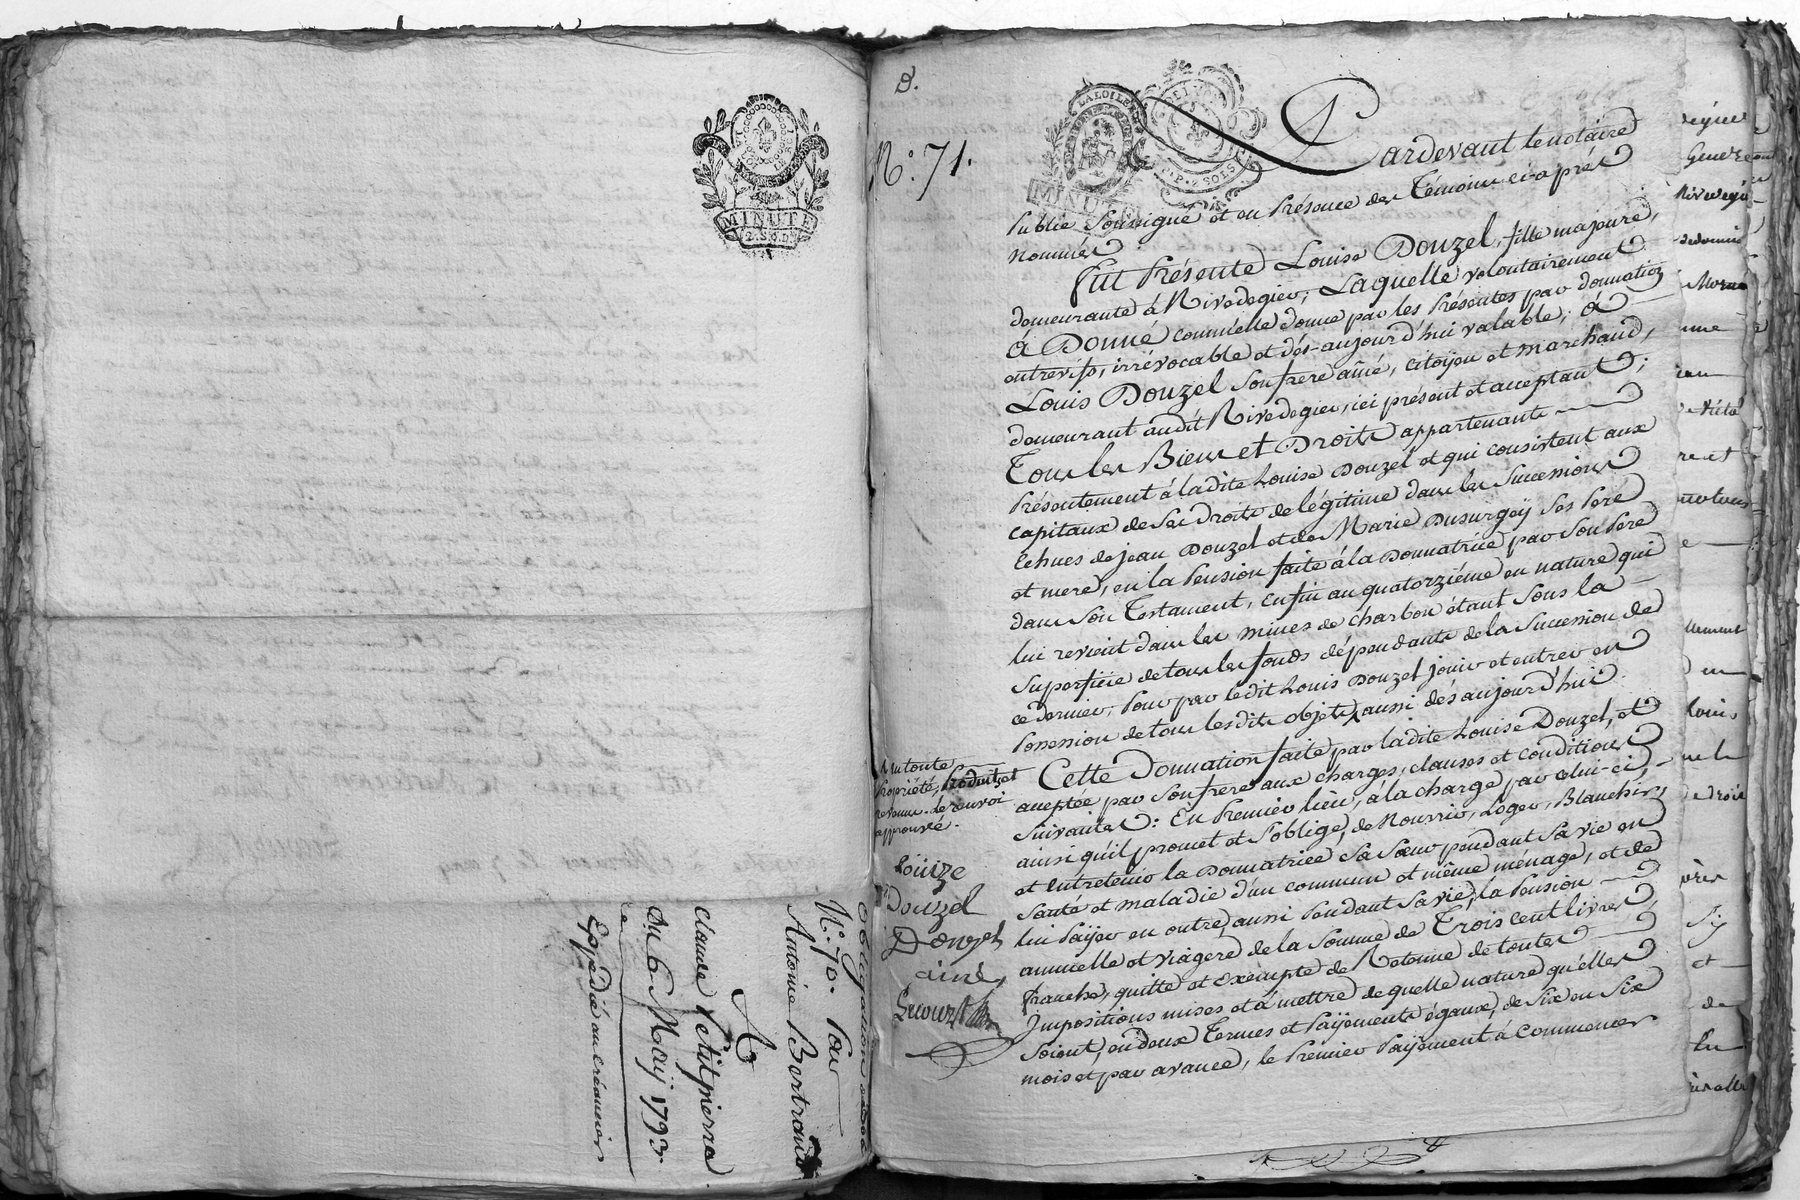 MINUTE
2. S. 6. D
Obligation
N.º 70. Pour
Antoine Bertrand
A
Claude Petitpierre
Du 6 Maÿ 1793
Expédié au créancier
D.
N.º 71.
LA LOI LE
MINUTE
Pardevant le notaire
Public Soussigné et en Présence des Témoins ci-après
nommés
Fut Présente Louise Douzel, fille majeure,
demeurante à Rivedegier, Laquelle volontairement
à Donné comm'elle donne par les Présentes par donnation
entrevifs, irrévocable et dès-aujourd'hui valable, à
Louis Douzel son frere ainé, citoÿen et marchand,
demeurant audit Rivedegier, ici présent et acceptant ;
Tous les Biens et Droits appartenants
Présentement à ladite Louise Douzel et qui consistent aux
capitaux de ses droits de légitime dans les Successions
Echues de jean Douzel et de Marie Dusurgeÿ Ses Pere
et mere, en la Pension faite à la Donnatrice par Son Pere
dans Son Testament, Enfin au quatorziéme en nature qui
lui revient dans les mines de charbon étant Sous la
Superficie de tous les fonds dépendants de la Succession de
ce dernier, Pour par ledit Louis Douzel jouir et entrer en
Possession de tous lesdits objets aussi dès aujourd'hui
En toute
Propriété, Produits et
revenus. le renvoi
approuvé.
Louize
Douzel
Douzel
ainé
Cette Donnation faite par ladite Louise Douzel, et
acceptée par Son frere aux charges, clauses et conditions
Suivantes : En Premier lieu, à la charge par celui-ci,
ainsi qu'il promet et s'oblige, de Nourrir, Loger, Blanchir,
et Entretenir la Donnatrice Sa Sœur pendant Sa vie en
Santé et maladie d'un commun et même ménage, et de
lui Païjer en outre, aussi Pendant Sa vie, la Pension
annuelle et viagere de la Somme de Trois cent livres
franche, quitte et Exempte de Retenue de toutes
Impositions mises et à mettre de quelle nature qu'elles
Soient, en deux Termes et Païjements égaux, de Six en Six
mois et par avance, le Premier Païjement à commencer